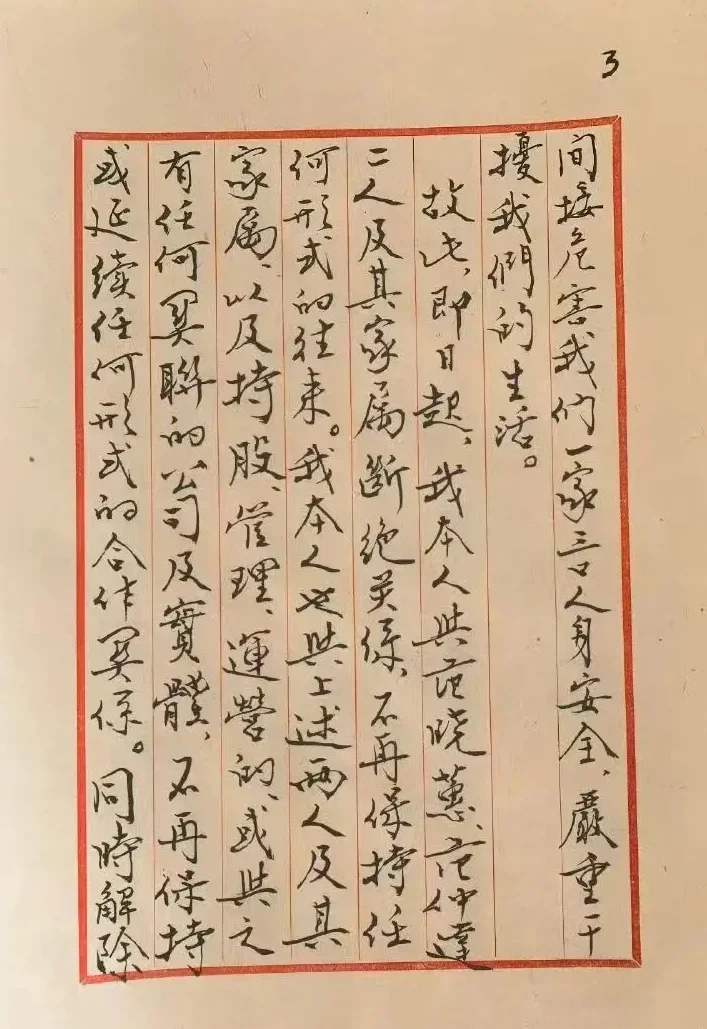 3
间接危害我们一家三口人身安全、嚴重干
擾我們的生活。
故此、即日起、我本人與范晓蕙、范仲達
二人及其家属断絶关係、不再保持任
何形式的往来。我本人也與上述两人及其
家属、以及持股、管理、運營的、或與之
有任何関聯的公司及實體、不再保持
或延續任何形式的合作関係。同時解除